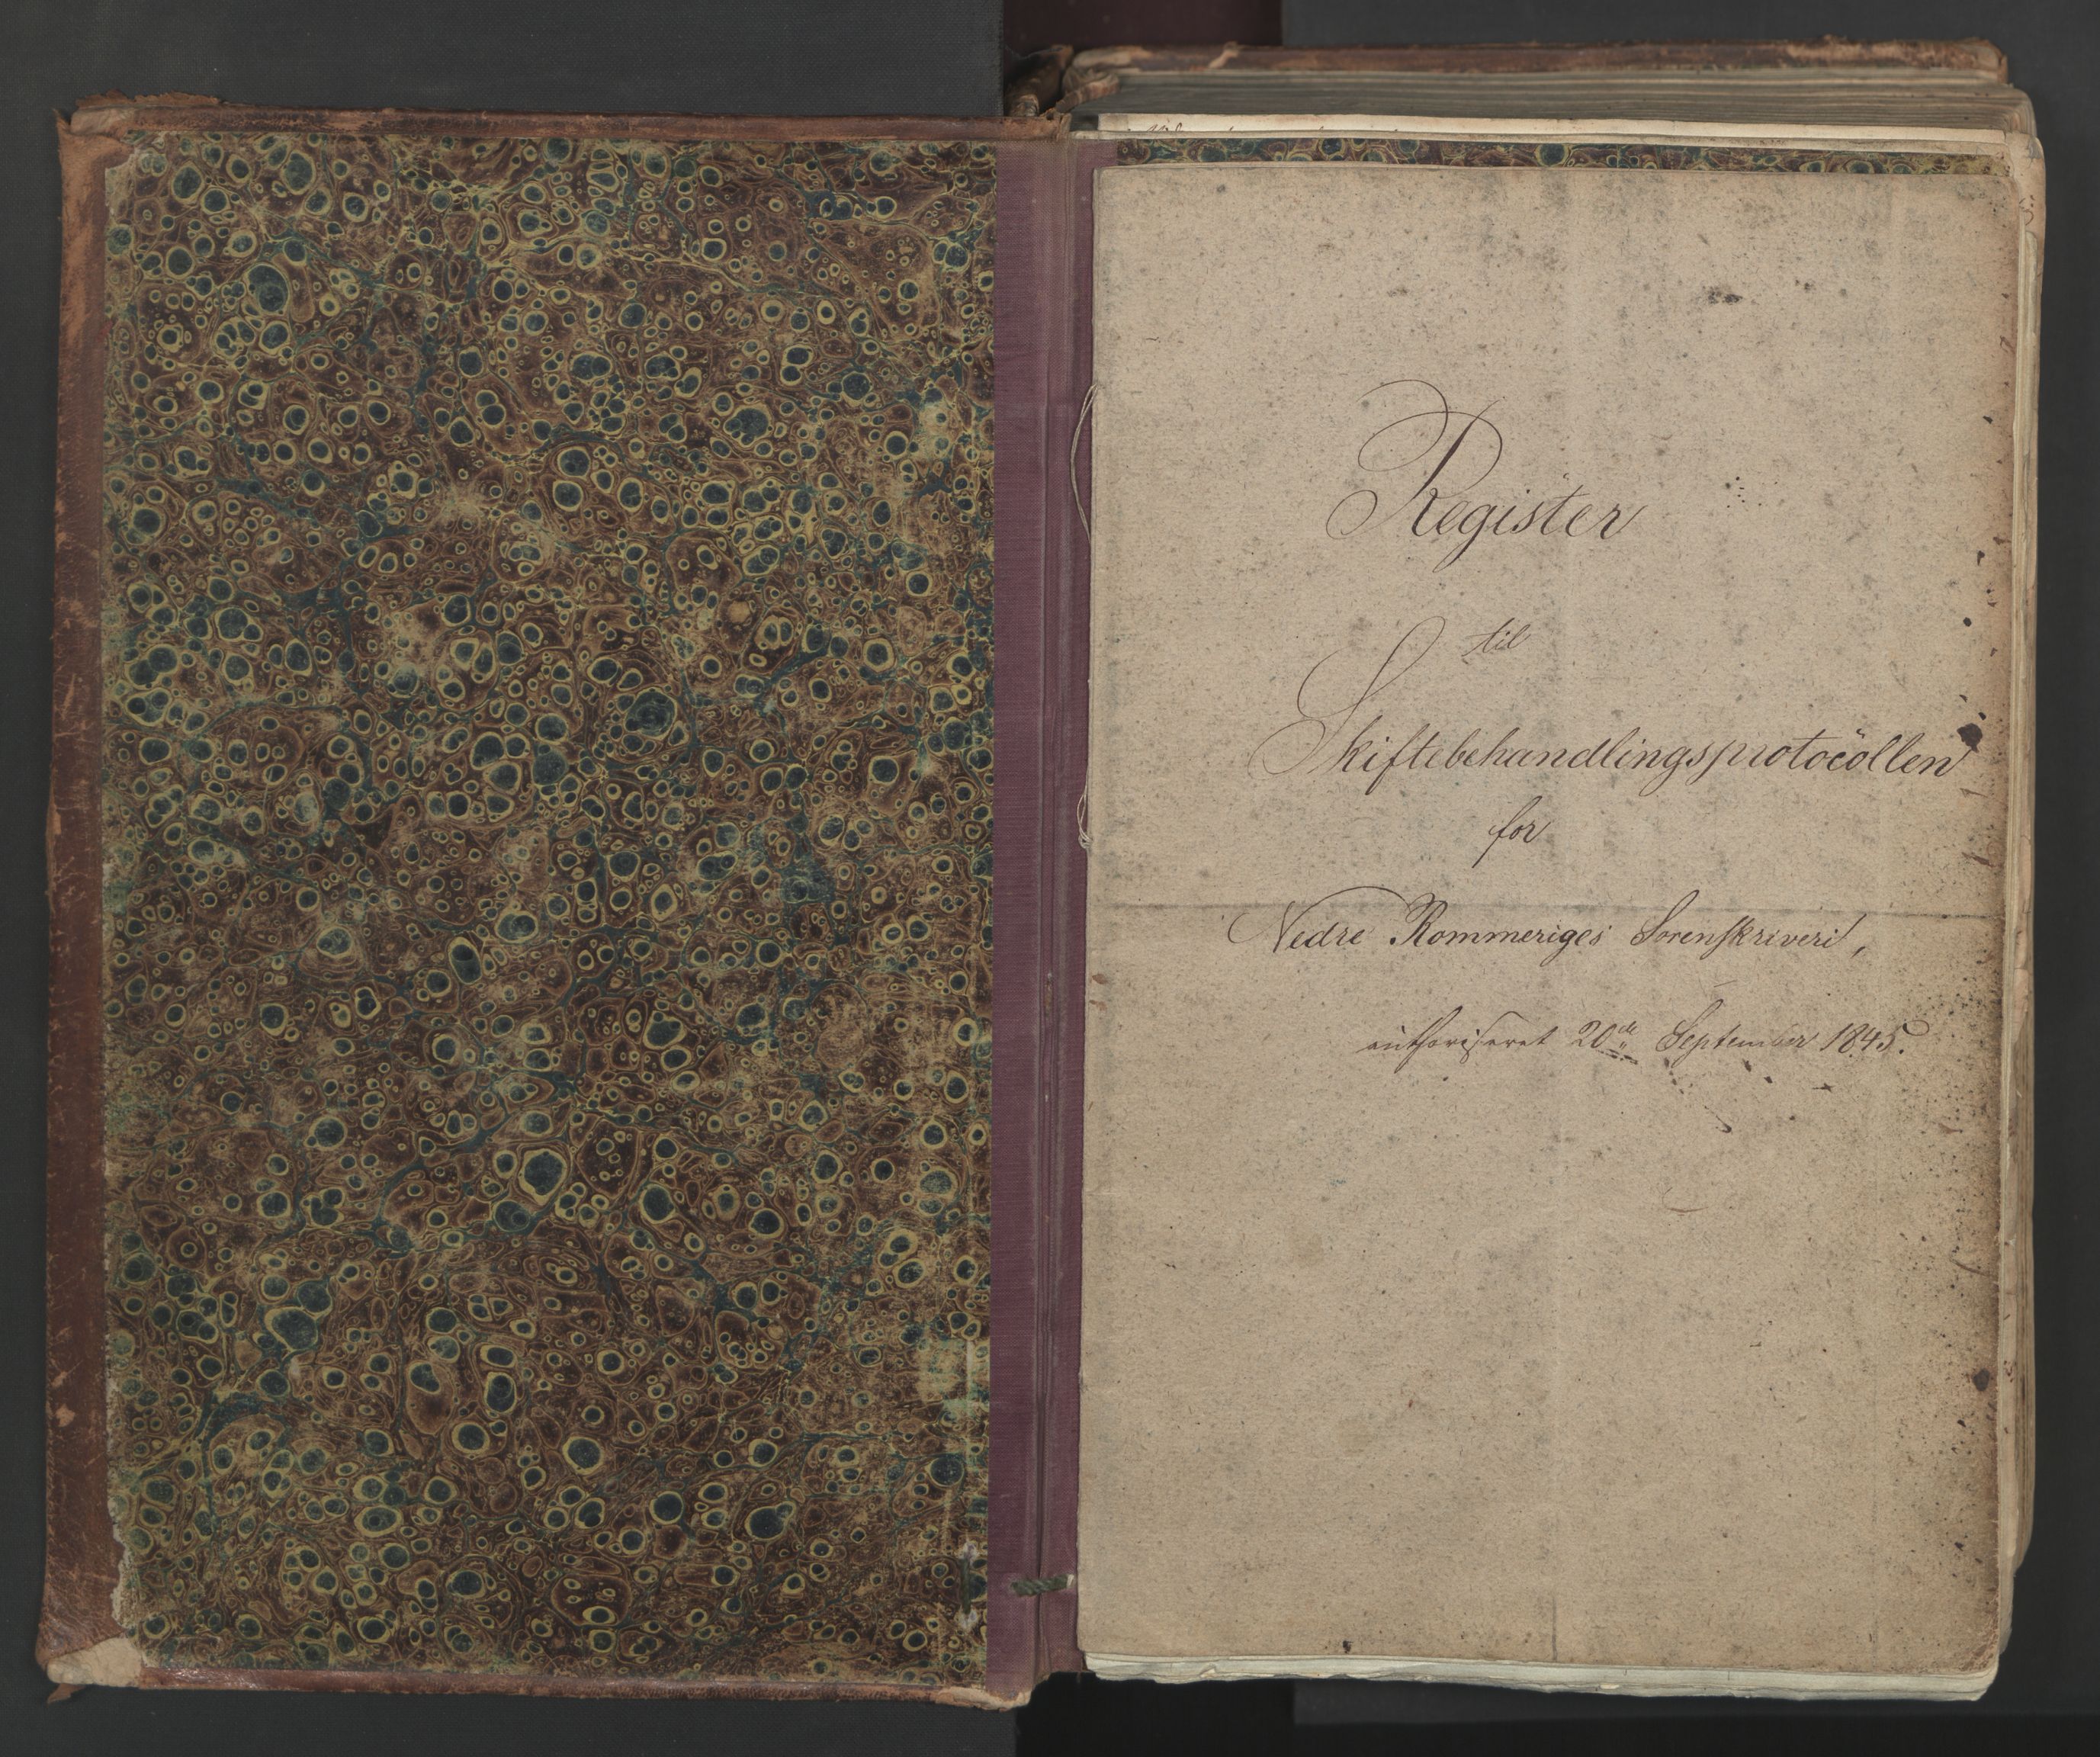 Register
til
Skiftebehandlingsprotocollen
for
Nedre Rommeriges Sorenskriveri,
authoriseret 20de September 1845.